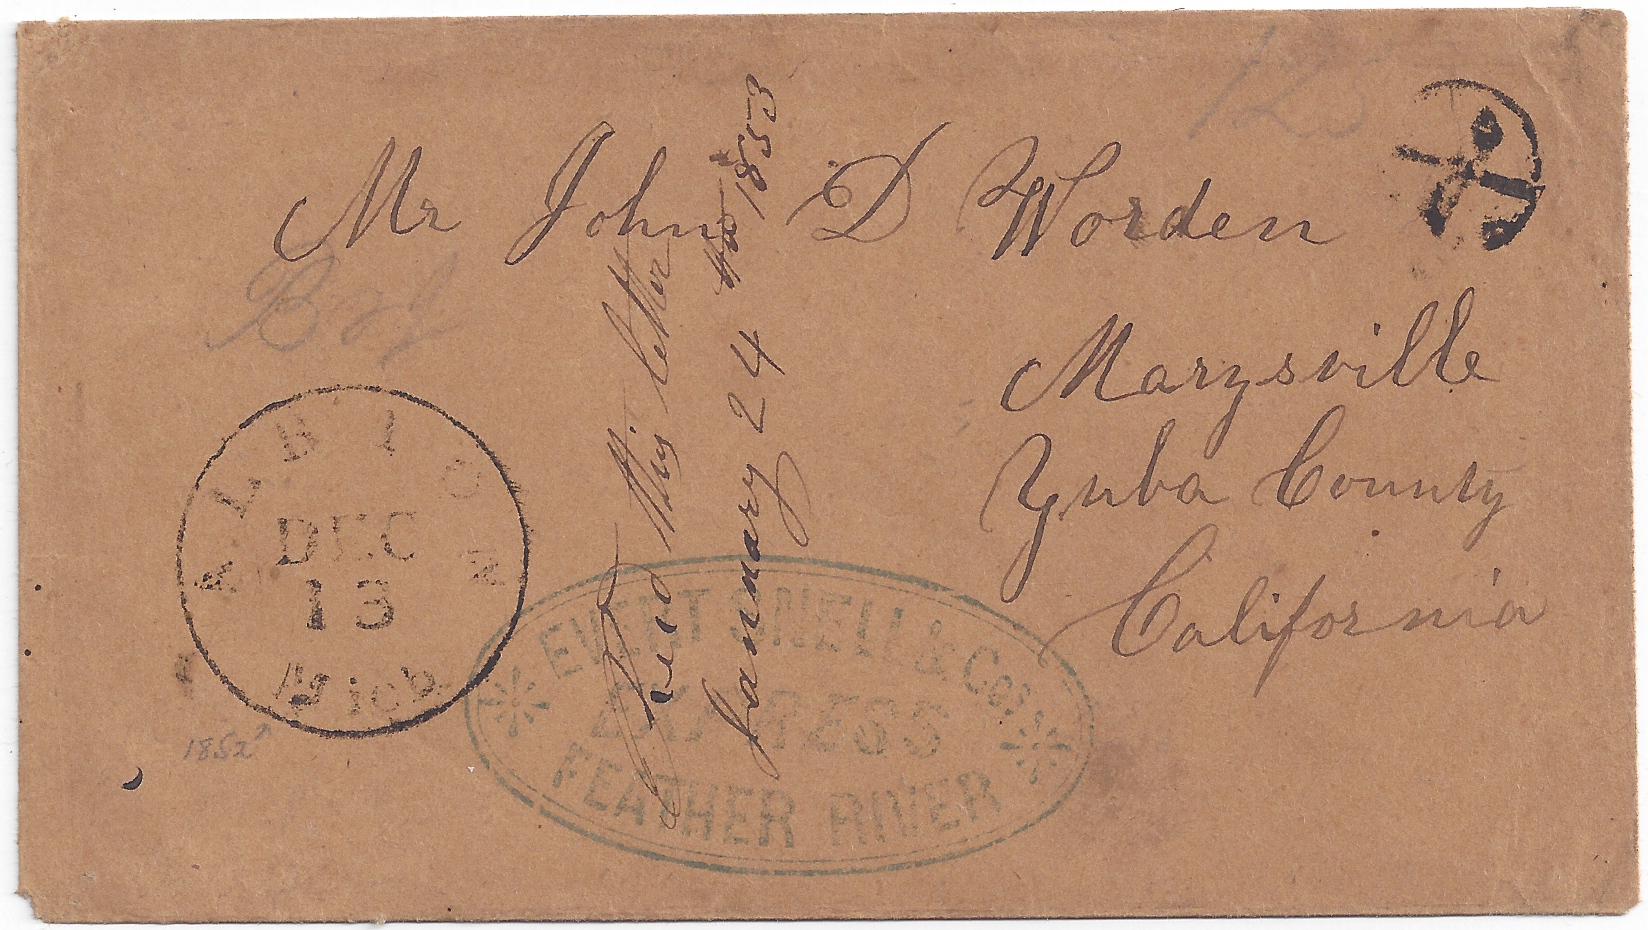 125
Mr John D Worden
Marysville
Yuba County
California
ALBION
DEC
13
Mich
1852
Recd this letter
January 24 1853
EVERT SNELL & Cos
EXPRESS
FEATHER RIVER